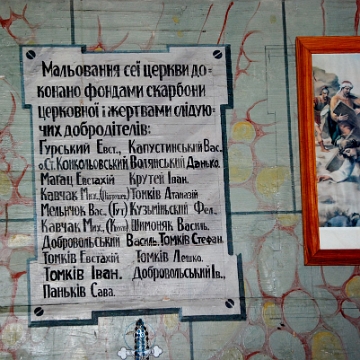 Мальовання сеї церкви до-
конано фондами скарбони
церковної і жертвами слідую-
чих добродітелів:
Гурський Евст., Капустинський Вас.
о Ст. Конкольовський Волянський Данько.
Магац Евстахій Крутей Іван.
Кавчак Мих., Томків Атаназій
Мельничок Вас. (Бут) Кузьміньский Фел.
Кавчак Мих., Шимоняк Василь.
Добровольський Василь. Томків Стефан.
Томків Евстахій Томків Лешко.
Томків Іван. Добровольський Ів.,
Паньків Сава.